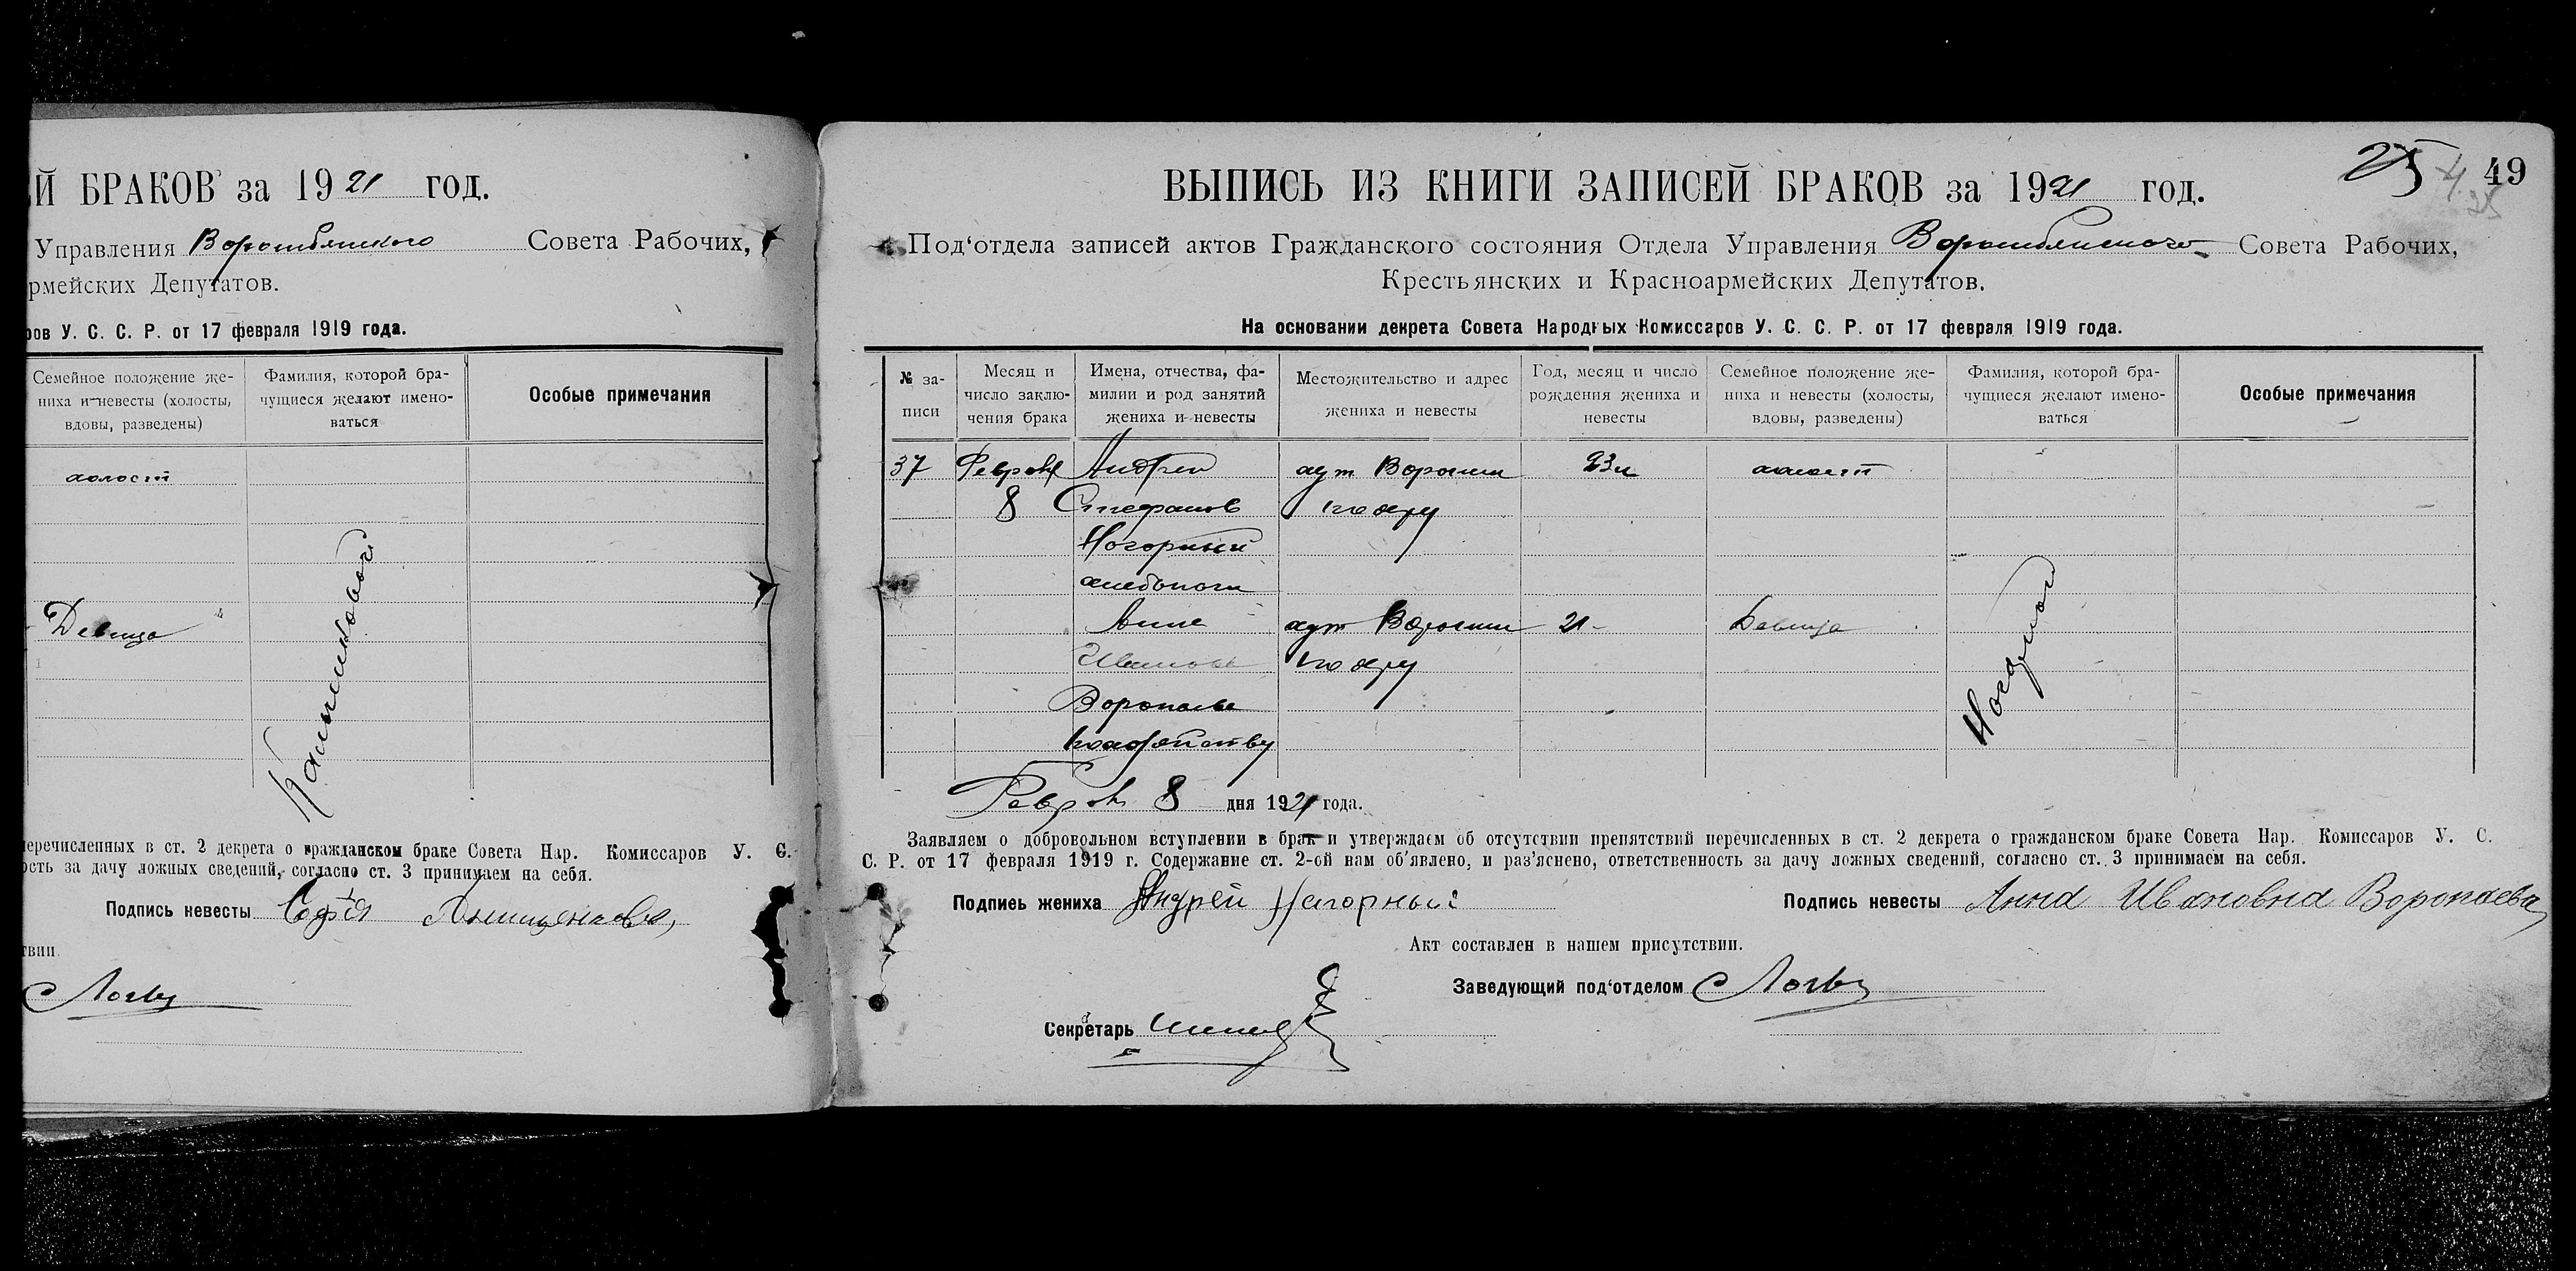 Й БРАКОВ за 1921 год.
Управления Ворожбянского Совета Рабочих,
рмейских Депутатов.
ров У. С. С. Р. от 17 февраля 1919 года.
Семейное положение же-
ниха и невесты (холосты,
вдовы, разведены)
Фамилия, которой бра-
чущиеся желают имено-
ваться
Особые примечания
холост
Девица
еречисленных в ст. 2 декрета о гражданском браке Совета Нар. Комиссаров У. С.
ость за дачу ложных сведений, согласно ст. 3 принимаем на себя.
Подпись невесты
твии.
25 49
ВЫПИСЬ ИЗ КНИГИ ЗАПИСЕЙ БРАКОВ за 1921 год.
Под‘отдела записей актов Гражданского состояния Отдела Управления Ворожбянского Совета Рабочих,
Крестьянских и Красноармейских Депутатов.
На основании декрета Совета Народных Комиссаров У. С. С. Р. от 17 февраля 1919 года.
№ за-
писи
Месяц и
число заклю-
чения брака
Имена, отчества, фа-
милии и род занятий
жениха и невесты
Местожительство и адрес
жениха и невесты
Год, месяц и число
рождения жениха и
невесты
Семейное положение же-
ниха и невесты (холосты,
вдовы, разведены)
Фамилия, которой бра-
чущиеся желают имено-
ваться
Особые примечания
37 Феврал Андрей хут 23 л холост
8 Стефанов
Нагорный
хлебопаш
Анна хут 21 Девица
Иванова
Воропаева
Нагорной
Феврал 8 дня 1921 года.
Заявляем о добровольном вступлении в брак и утверждаем об отсутствии препятствий перечисленных в ст. 2 декрета о гражданском браке Совета Нар. Комиссаров У. С.
С. Р. от 17 февраля 1919 г. Содержание ст. 2-ой нам об'явлено, и раз'яснено, ответственность за дачу ложных сведений, согласно ст. 3 принимаем на себя.
Подпись жениха Андрей Нагорный
Подпись невесты Анна Ивановна Воропаева
Акт составлен в нашем присутствии.
Заведующий под‘отделом
Секретарь